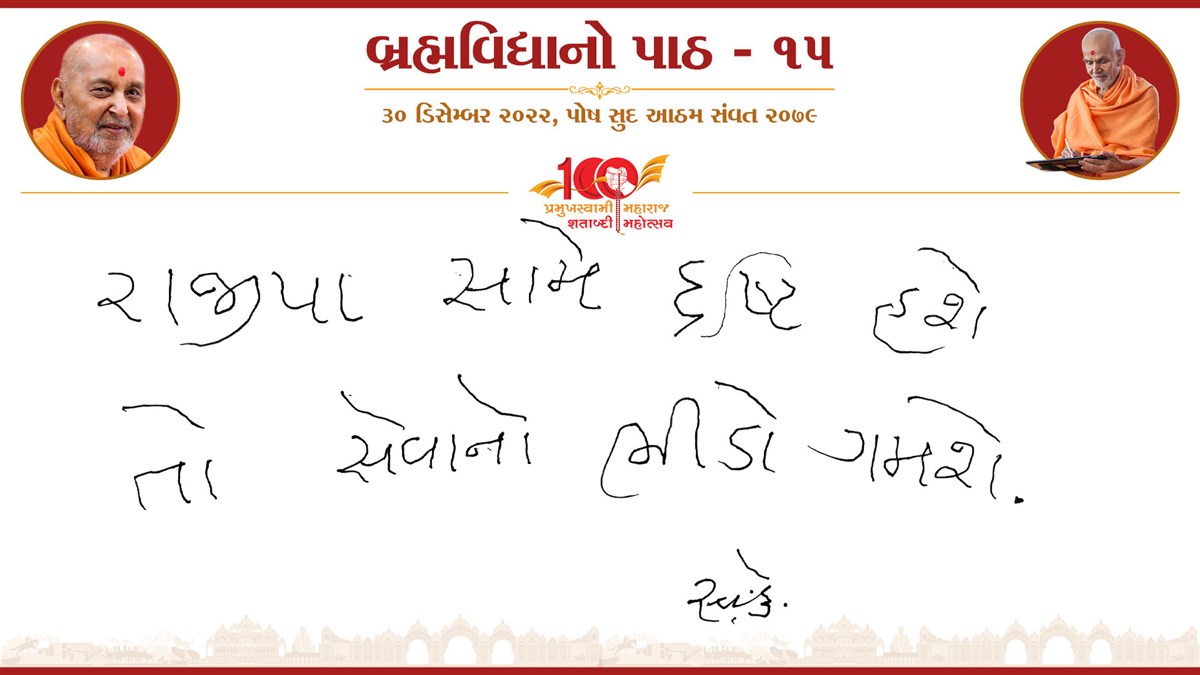 બ્રહ્મવિદ્યાનો પાઠ - ૧૫
૩૦ ડિસેમ્બર ૨૦૨૨, પોષ સુદ આઠમ સંવત ૨૦૭૯
100
પ્રમુખસ્વામી મહારાજ
શતાબ્દી મહોત્સવ
રાજીપા સામે દૃષ્ટિ હશે
તો સેવાનો ભીડો ગમશે.